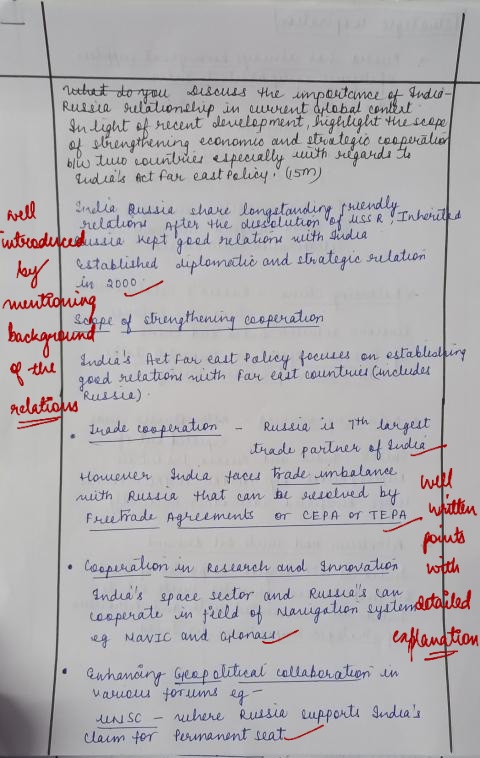 What do you Discuss the importance of India-
Russia relationship in current global context.
In light of recent development, highlight the scope
of strengthening economic and strategic cooperation
b/w two countries especially with regards to
India's Act Far east Policy. (15M)
India Russia share longstanding friendly
relations After the dissolution of USSR, Inherited
Russia kept good relations with India
Established diplomatic and strategic relation
in 2000.
well
introduced
by
mentioning
background
of the
relations
Scope of strengthening cooperation
India's Act Far east Policy focuses on establishing
good relations with Far east countries (includes
Russia).
• Trade cooperation - Russia is 7th largest
trade partner of India
However India faces trade imbalance
with Russia that can be resolved by
Free trade Agreements or CEPA or TEPA
well
written
points
with
detailed
explanation
• Cooperation in Research and Innovation
India's space sector and Russia's can
cooperate in field of Navigation system
eg NAVIC and Glonass
• Enhancing Geopolitical collaboration in
various forums eg -
UNSC - where Russia supports India's
claim for Permanent seat